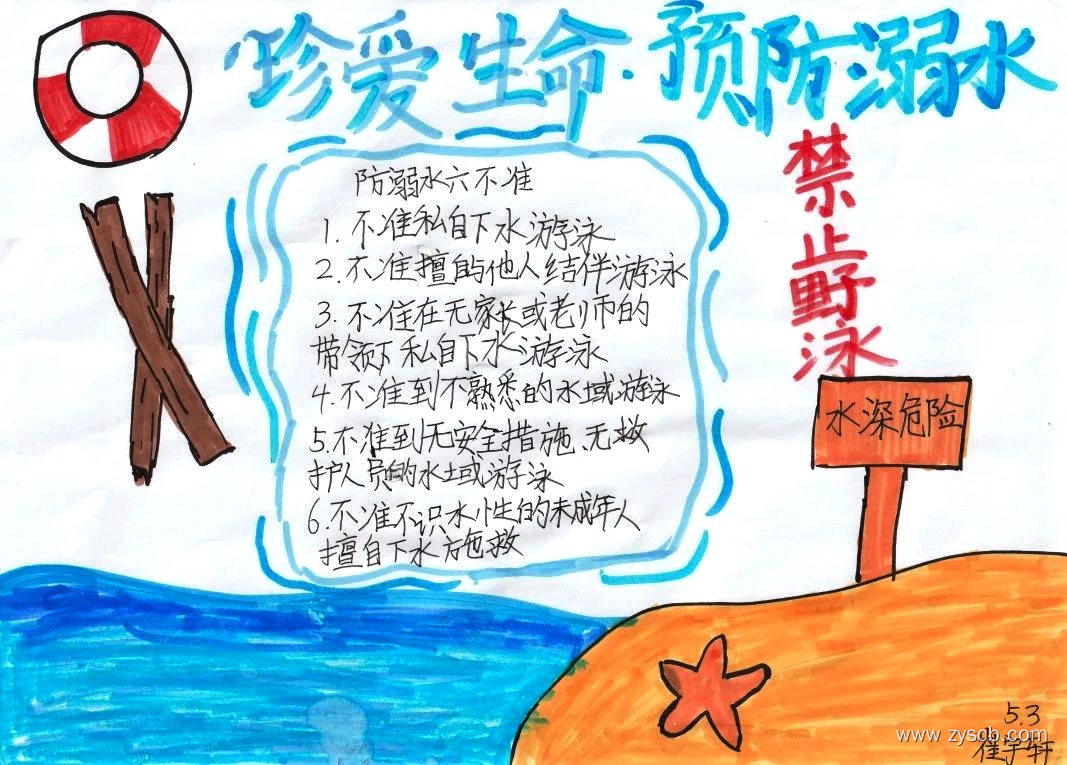 珍爱生命·预防溺水
防溺水六不准
1.不准私自下水游泳
2.不准擅自与他人结伴游泳
3.不准在无家长或老师的
带领下私自下水游泳
4.不准到不熟悉的水域游泳
5.不准到无安全措施、无救
护人员的水域游泳
6.不准不识水性的未成年人
擅自下水施救
禁止野泳
水深危险
5.3
www.zyscb.com